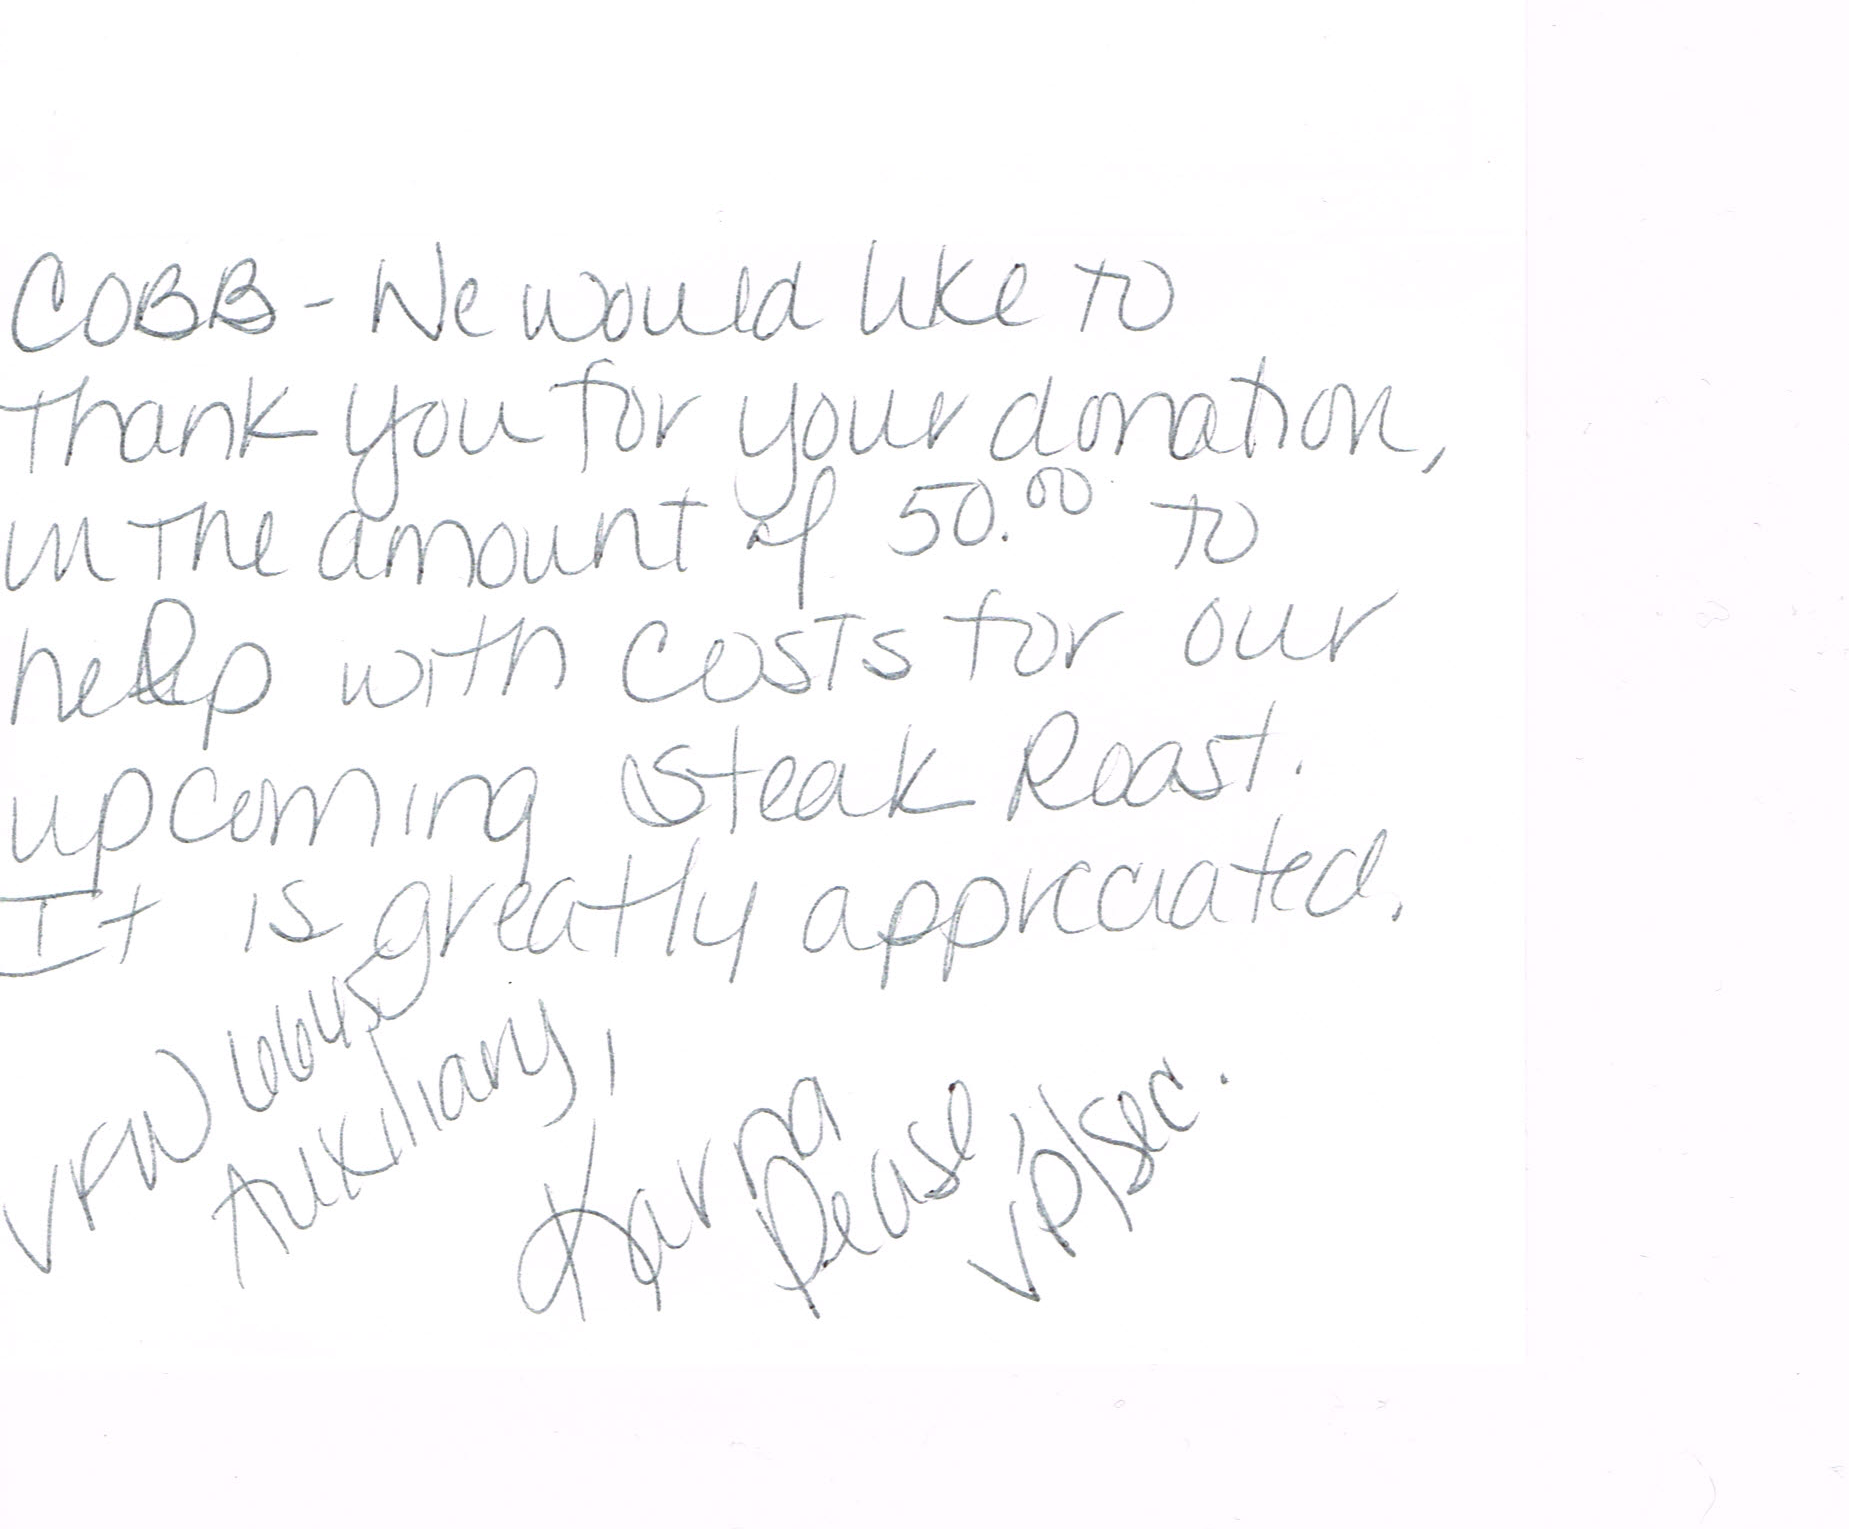 COBB - We would like to
thank you for your donation,
in the amount of 50.00 to
help with costs for our
upcoming Steak Roast.
It is greatly appreciated.
VFW 6645
Auxiliary,
Karna
Pease
VP/Sec.